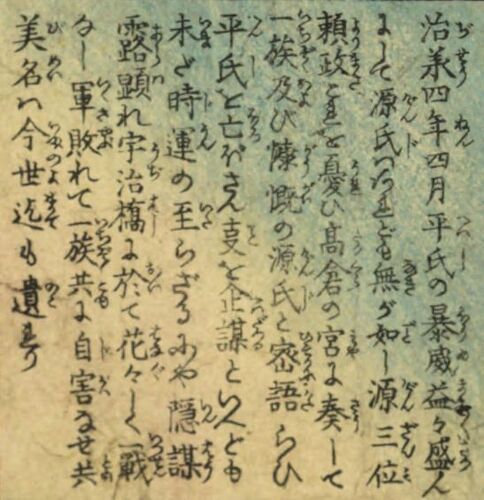 治承四年四月平氏の暴威益々盛ん
にして源氏ハあれども無が如し源三位
頼政これを憂ひ高倉の宮に奏して
一族及び慷慨の源氏と密語らひ
平氏を亡ぼさん支を企謀といへども
未だ時運の至らざるにや隠謀
露顕れ宇治橋に於て花々しく一戦
なし軍敗れて一族共に自害なせ共
美名ハ今世迄も遺れり